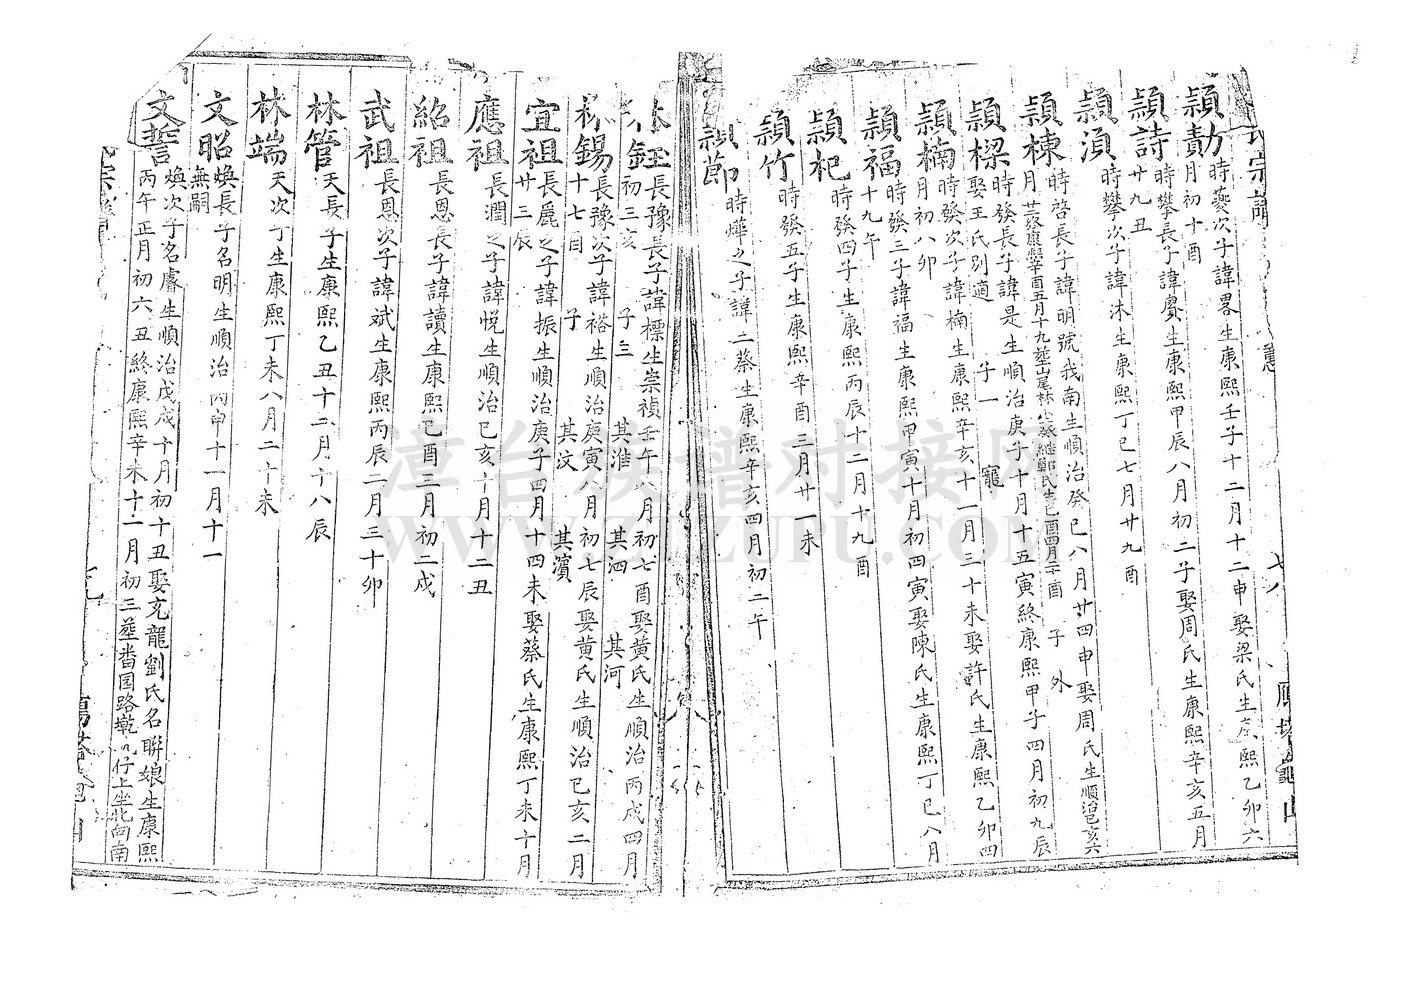 氏宗譜
七八
穎勣 時夔次子諱畧生康熙壬子十二月十二申娶梁氏生康熙乙卯六
月初十酉
穎詩 時攀長子諱賡生康熙甲辰八月初二子娶周氏生康熙辛亥五月
廿九丑
穎湏 時攀次子諱沐生康熙丁巳七月廿九酉
穎棟 時啓長子諱明號我南生順治癸巳八月廿四申娶周氏生順治己亥六
月廿
子 外
穎樑 時發長子諱是生順治庚子十月十五寅終康熙甲子四月初九辰
娶王氏别適 子一 寵
穎楠 時發次子諱楠生康熙辛亥十一月三十未娶許氏生康熙乙卯四
月初八卯
穎福 時發三子諱福生康熙甲寅十月初四寅娶陳氏生康熙丁巳八月
十九午
穎杞 時發四子生康熙丙辰十二月十九酉
穎竹 時發五子生康熙辛酉三月廿一未
穎節 時燁之子諱二蔡生康熙辛亥四月初二午
林鈺 長豫長子諱標生崇禎壬午八月初七酉娶黄氏生順治丙戌四月
初三亥 子三 其淮 其泗 其河
林錫 長豫次子諱裕生順治庚寅八月初七辰娶黄氏生順治己亥二月
十七酉 子 其汶 其濱
宜祖 長麗之子諱振生順治庚子四月十四未娶蔡氏生康熙丁未十月
廿三辰
應祖 長潤之子諱悦生順治己亥十月十二丑
紹祖 長恩長子諱讀生康熙己酉三月初二戌
武祖 長恩次子諱斌生康熙丙辰二月三十卯
林管 天長子生康熙乙丑十二月十八辰
林端 天次丁生康熙丁未八月二十未
文昭 煥長子名明生順治丙申十一月十一
無嗣
文誥 煥次子名膚生順治戊戌十月初十丑娶充龍劉氏名聨娘生康熙
丙午正月初六丑終康熙辛未十二月初三塟畨园路墘九仔上坐北向南
七九
漳台族谱对接网
WWW.ZTZUPU.COM